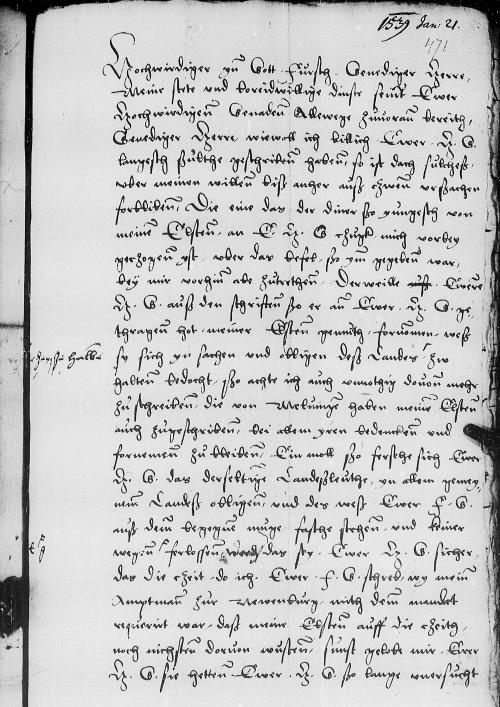 1539 Jan 21.
471
Hochwirdiger yn Gott Fursth Genediger Herre,
Meine stete und bereidwillige dinste seint Ewer
Hochwirdigenn Genaden Allewege zuuorann bereith,
Genediger Herre wiewoll ich billich Ewer. H. G.
langesth sulthe geschriben haben, so ist doch sulchess
uber meinen willen biss anher auss zween ursachen
forbliben, Die eine das der diner sso yungesth von
meinen Elsten, an E. H. G. mich vorbey
gezogenn yst, uber das befel, so ym gegeben war,
bey mir vorhin abe zutrethen, Derweile Ewere
H. G. auss den schriften so er an Ewer. H. G. ge-
thragenn hot, meiner Elsten gemuth fornomen, wess
sy sich yn sachen und obligen dess Landes, zw
halten bedocht, sso achte ich auch unnothig douon mehr
zu schreiben, die von Melwingen haben meine Elsten
auch zugeschriben, bei allem yren bedencken und
fornemen zu bleiben, Ein moll sso fersthe sich Ewer
H. G. das derselbigen Landessleuthe, yn allem gemey-
nenn Landess obligen, und des wess Ewer F. G.
auss dem begegne muge, fasthe stehenn, und keiner
weyss forlossenn das sey. Ewer H. G. sicher,
das die czeit do ich. Ewer. F. G. schreb, wy mein
Amptman zur Newenburg mith dem mandat
requirirt war, dass meine Elsten auff die czeith,
noch nichsten dorvon wusten, sunst gelobe mir Ewer
H. G. sie hetten Ewer. H. G. so lange unersucht